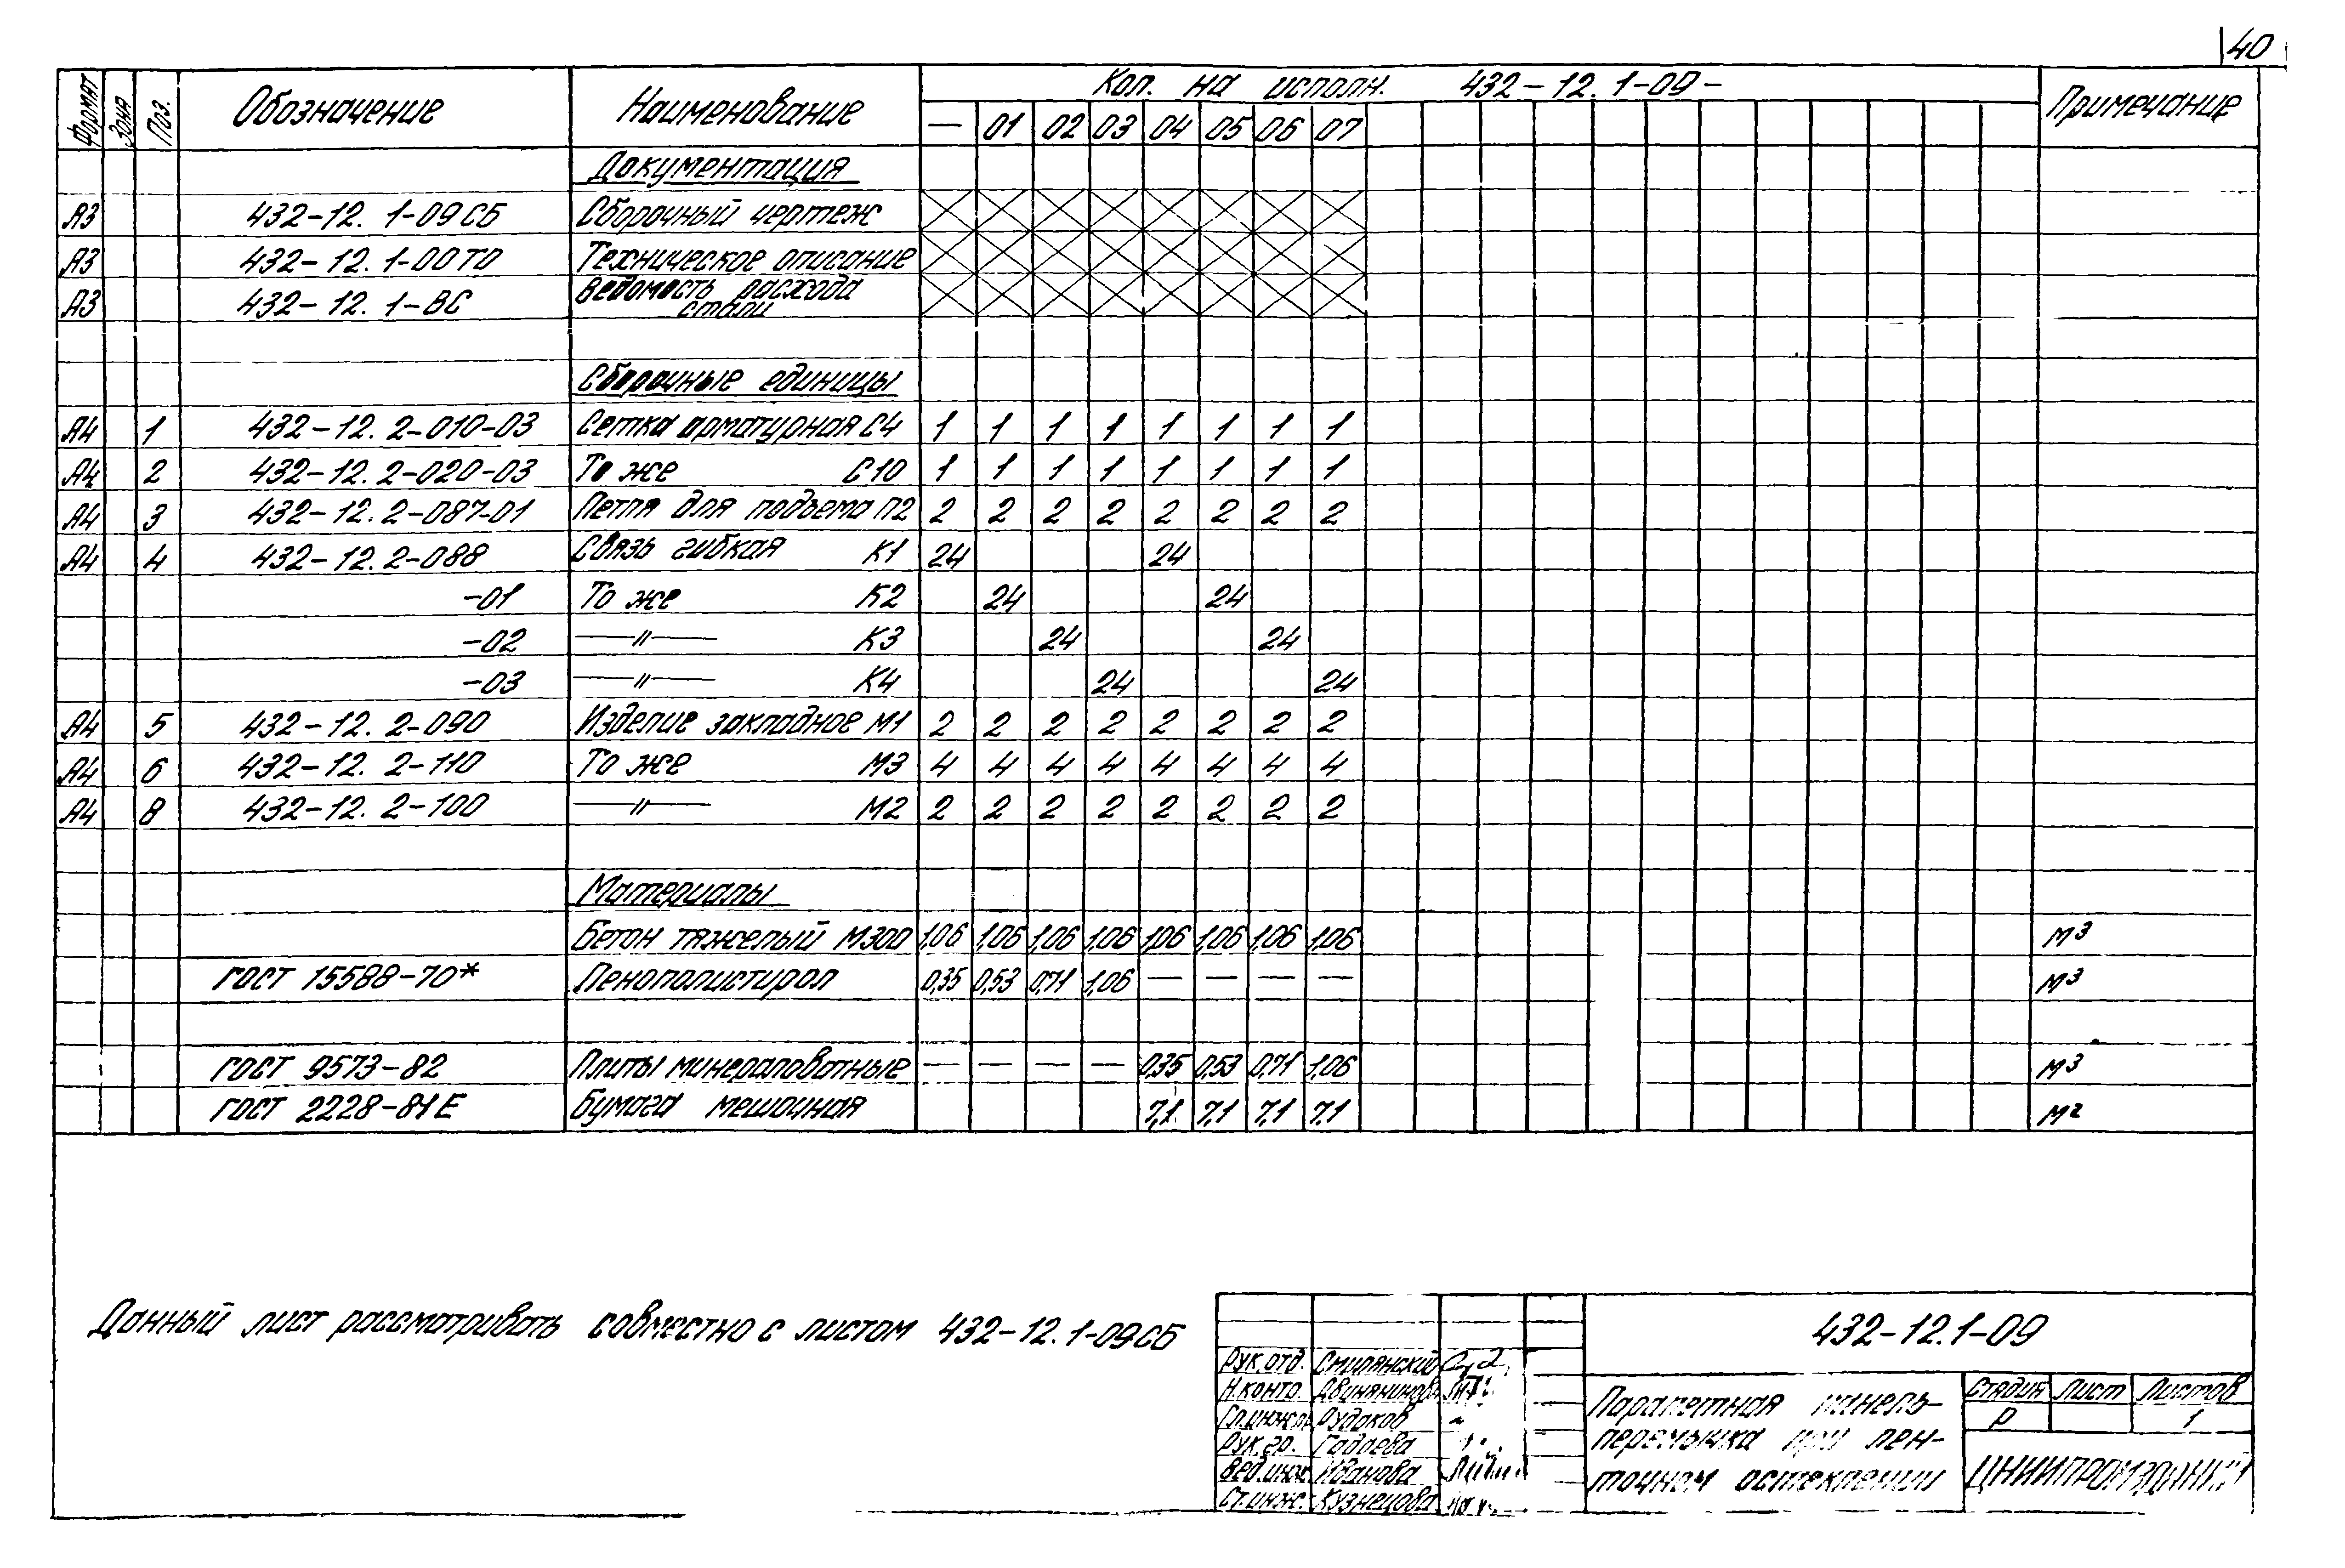 40
Формат Зона Поз. Обозначение Наименование Кол. на исполн. 432-12.1-09- Примечание
— 01 02 03 04 05 06 07
Документация
А3 432-12.1-09СБ Сборочный чертеж
А3 432-12.1-00ТО Техническое описание
А3 432-12.1-ВС Ведомость расхода
стали
Сборочные единицы
А4 1 432-12.2-010-03 Сетка арматурная С4 1 1 1 1 1 1 1 1
А4 2 432-12.2-020-03 То же С10 1 1 1 1 1 1 1 1
А4 3 432-12.2-087-01 Петля для подъема П2 2 2 2 2 2 2 2 2
А4 4 432-12.2-088 Связь гибкая К1 24 24
-01 То же К2 24 24
-02 —"— К3 24 24
-03 —"— К4 24 24
А4 5 432-12.2-090 Изделие закладное М1 2 2 2 2 2 2 2 2
А4 6 432-12.2-110 То же М3 4 4 4 4 4 4 4 4
А4 8 432-12.2-100 —"— М2 2 2 2 2 2 2 2 2
Материалы
Бетон тяжелый М300 1,06 1,06 1,06 1,06 1,06 1,06 1,06 1,06 м³
ГОСТ 15588-70* Пенополистирол 0,35 0,53 0,71 1,06 — — — — м³
ГОСТ 9573-82 Плиты минераловатные — — — — 0,35 0,53 0,71 1,06 м³
ГОСТ 2228-81Е Бумага мешочная 7,1 7,1 7,1 7,1 м²
Данный лист рассматривать совместно с листом 432-12.1-09СБ
432-12.1-09
Рук.отд. Смилянский
Н.контр. Двинянинова
Гл.инж.пр. Рудаков
Рук.гр. Гадаева
Вед.инж. Иванова
Ст.инж. Кузнецова
Парапетная панель-
перемычка при лен-
точном остеклении
Стадия Лист Листов
Р 1
ЦНИИПРОМЗДАНИЙ